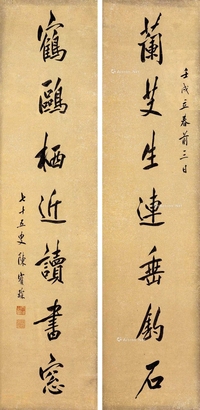 蘭芰生連垂釣石
壬戌立春前三日
鶴鷗栖近讀書窓
七十五叟陳寶琛